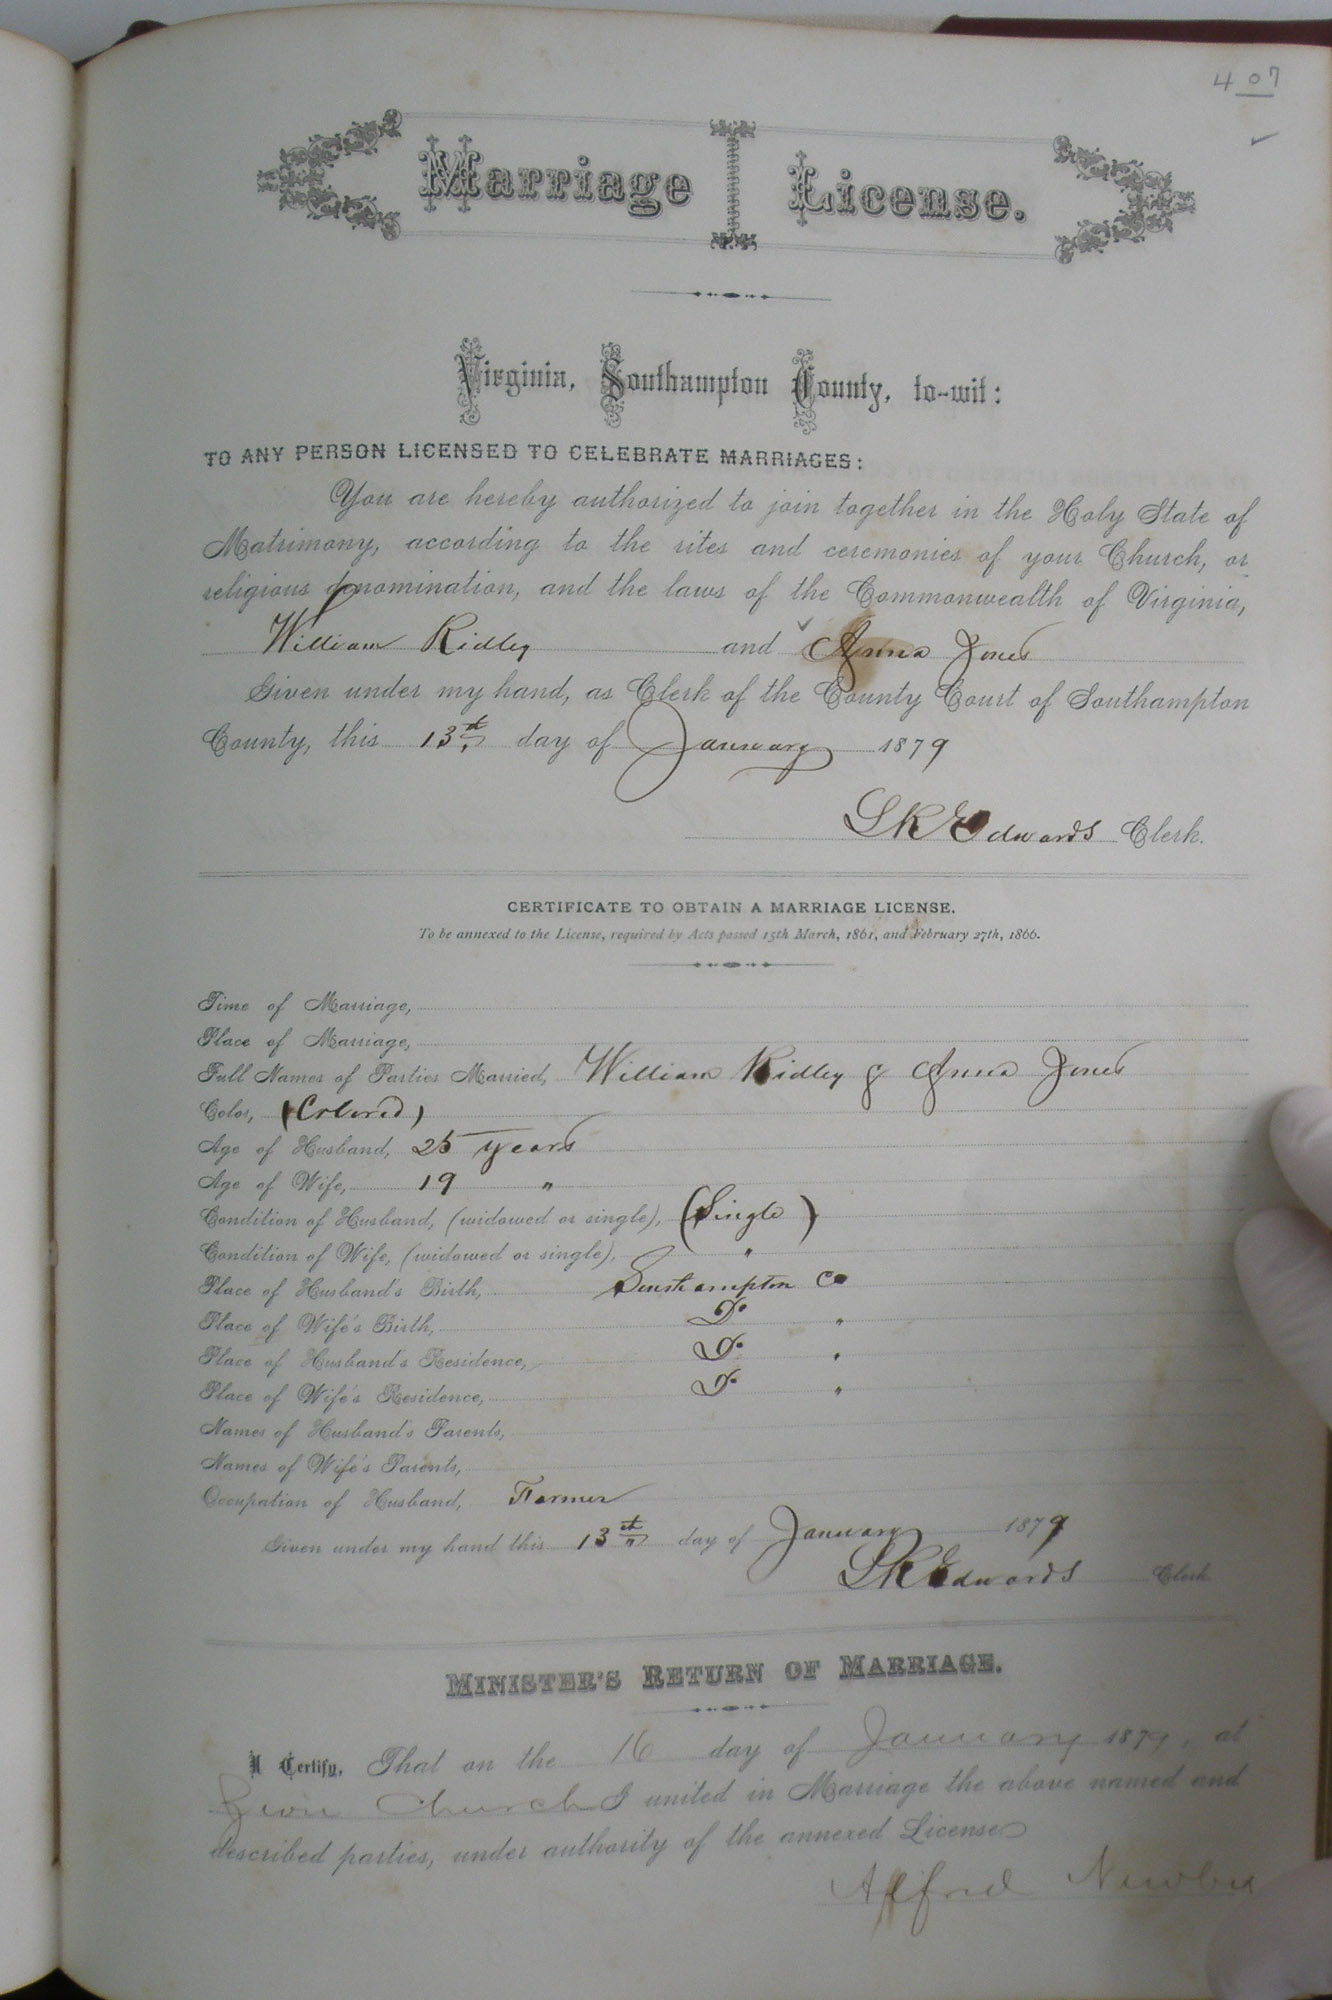 407
Marriage License.
Virginia, Southampton County, to-wit:
TO ANY PERSON LICENSED TO CELEBRATE MARRIAGES:
You are hereby authorized to join together in the Holy State of
Matrimony, according to the rites and ceremonies of your Church, or
religious denomination, and the laws of the Commonwealth of Virginia,
William Ridley and Anna Jones
Given under my hand, as Clerk of the County Court of Southampton
County, this 13th day of January 1879
L R Edwards Clerk.
CERTIFICATE TO OBTAIN A MARRIAGE LICENSE.
To be annexed to the License, required by Acts passed 15th March, 1861, and February 27th, 1866.
Time of Marriage,
Place of Marriage,
Full Names of Parties Married, William Ridley & Anna Jones
Color, (Colored)
Age of Husband, 25 years
Age of Wife, 19 "
Condition of Husband, (widowed or single), (Single)
Condition of Wife, (widowed or single), "
Place of Husband's Birth, Southampton Co
Place of Wife's Birth, Do "
Place of Husband's Residence, Do "
Place of Wife's Residence, Do "
Names of Husband's Parents,
Names of Wife's Parents,
Occupation of Husband, Farmer
Given under my hand this 13th day of January 1879
L R Edwards Clerk
MINISTER'S RETURN OF MARRIAGE.
I Certify, That on the 16 day of January 1879, at
Zion Church I united in Marriage the above named and
described parties, under authority of the annexed License
Alfred Newby